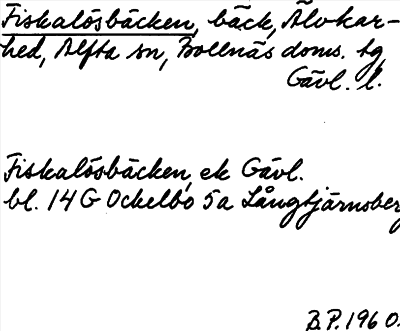 Fiskalösbäcken, bäck, Älvkar-
hed, Alfta sn, Bollnäs doms. tg
Gävl. l.
Fiskalösbäcken, ek Gävl.
bl. 14 G Ockelbo 5a Långtjärnsberg
B.P. 1960.